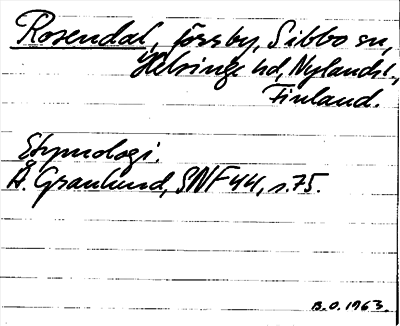 Rosendal, förr by, Sibbo sn,
Helsinge hd, Nylands l.,
Finland.
Etymologi.
Å. Granlund, SNF 44, s. 75.
B.O. 1963.